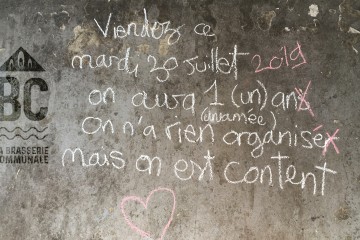 Viendez ce
mardi 30 juillet 2019
on aura 1 (un) an
(divamée)
on n'a rien organisé
mais on est content
BC
LA BRASSERIE
COMMUNALE